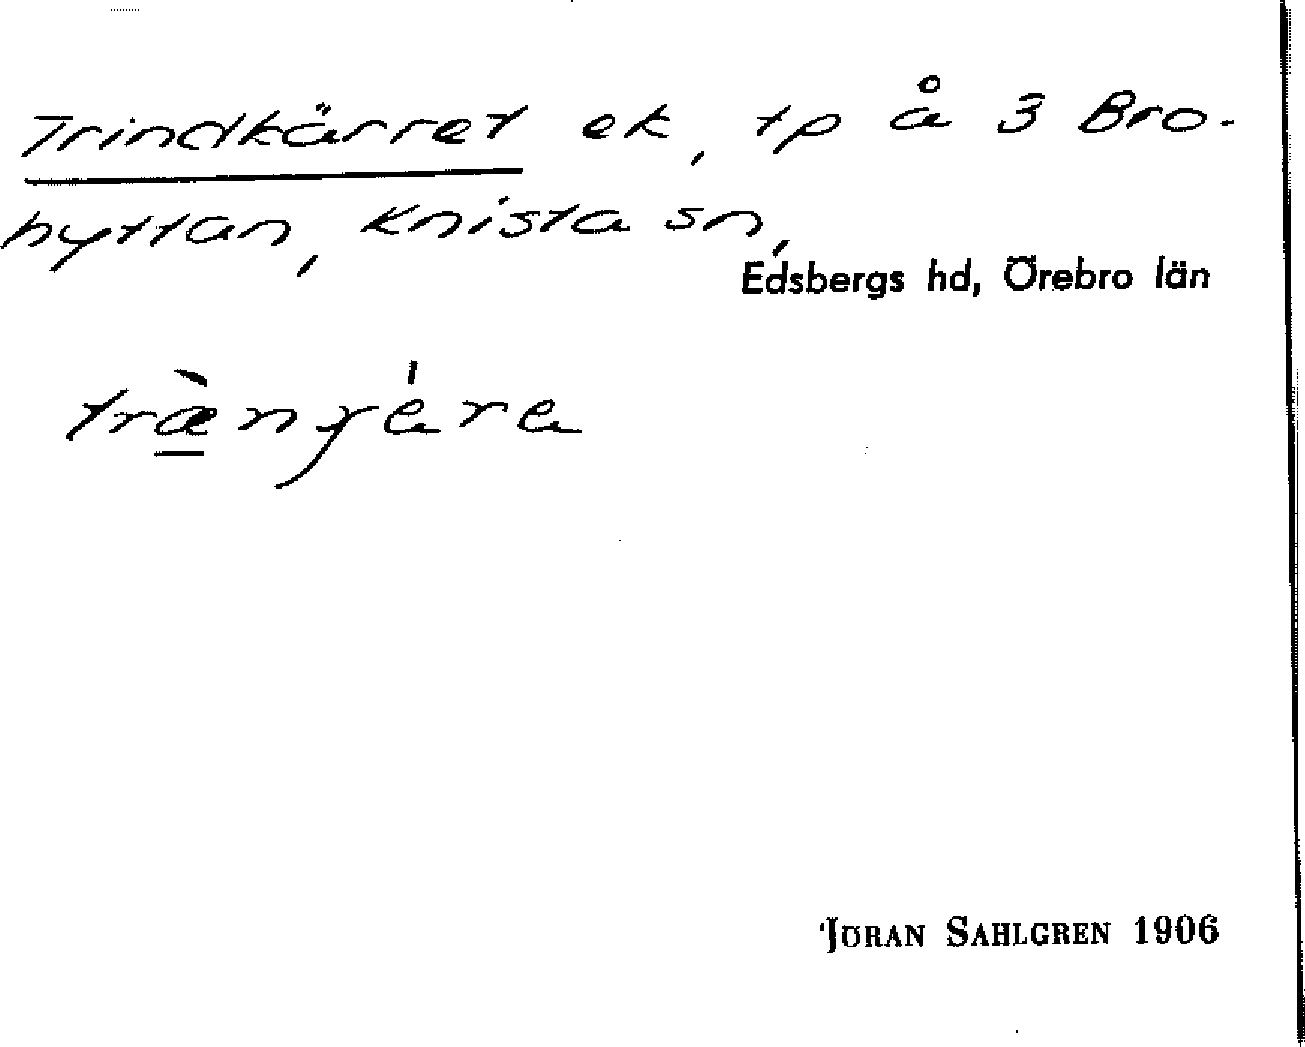 Trindkärret ek, tp å 3 Bro-
hyttan, Knista sn,
Edsbergs hd, Örebro län
JÖRAN SAHLGREN 1906